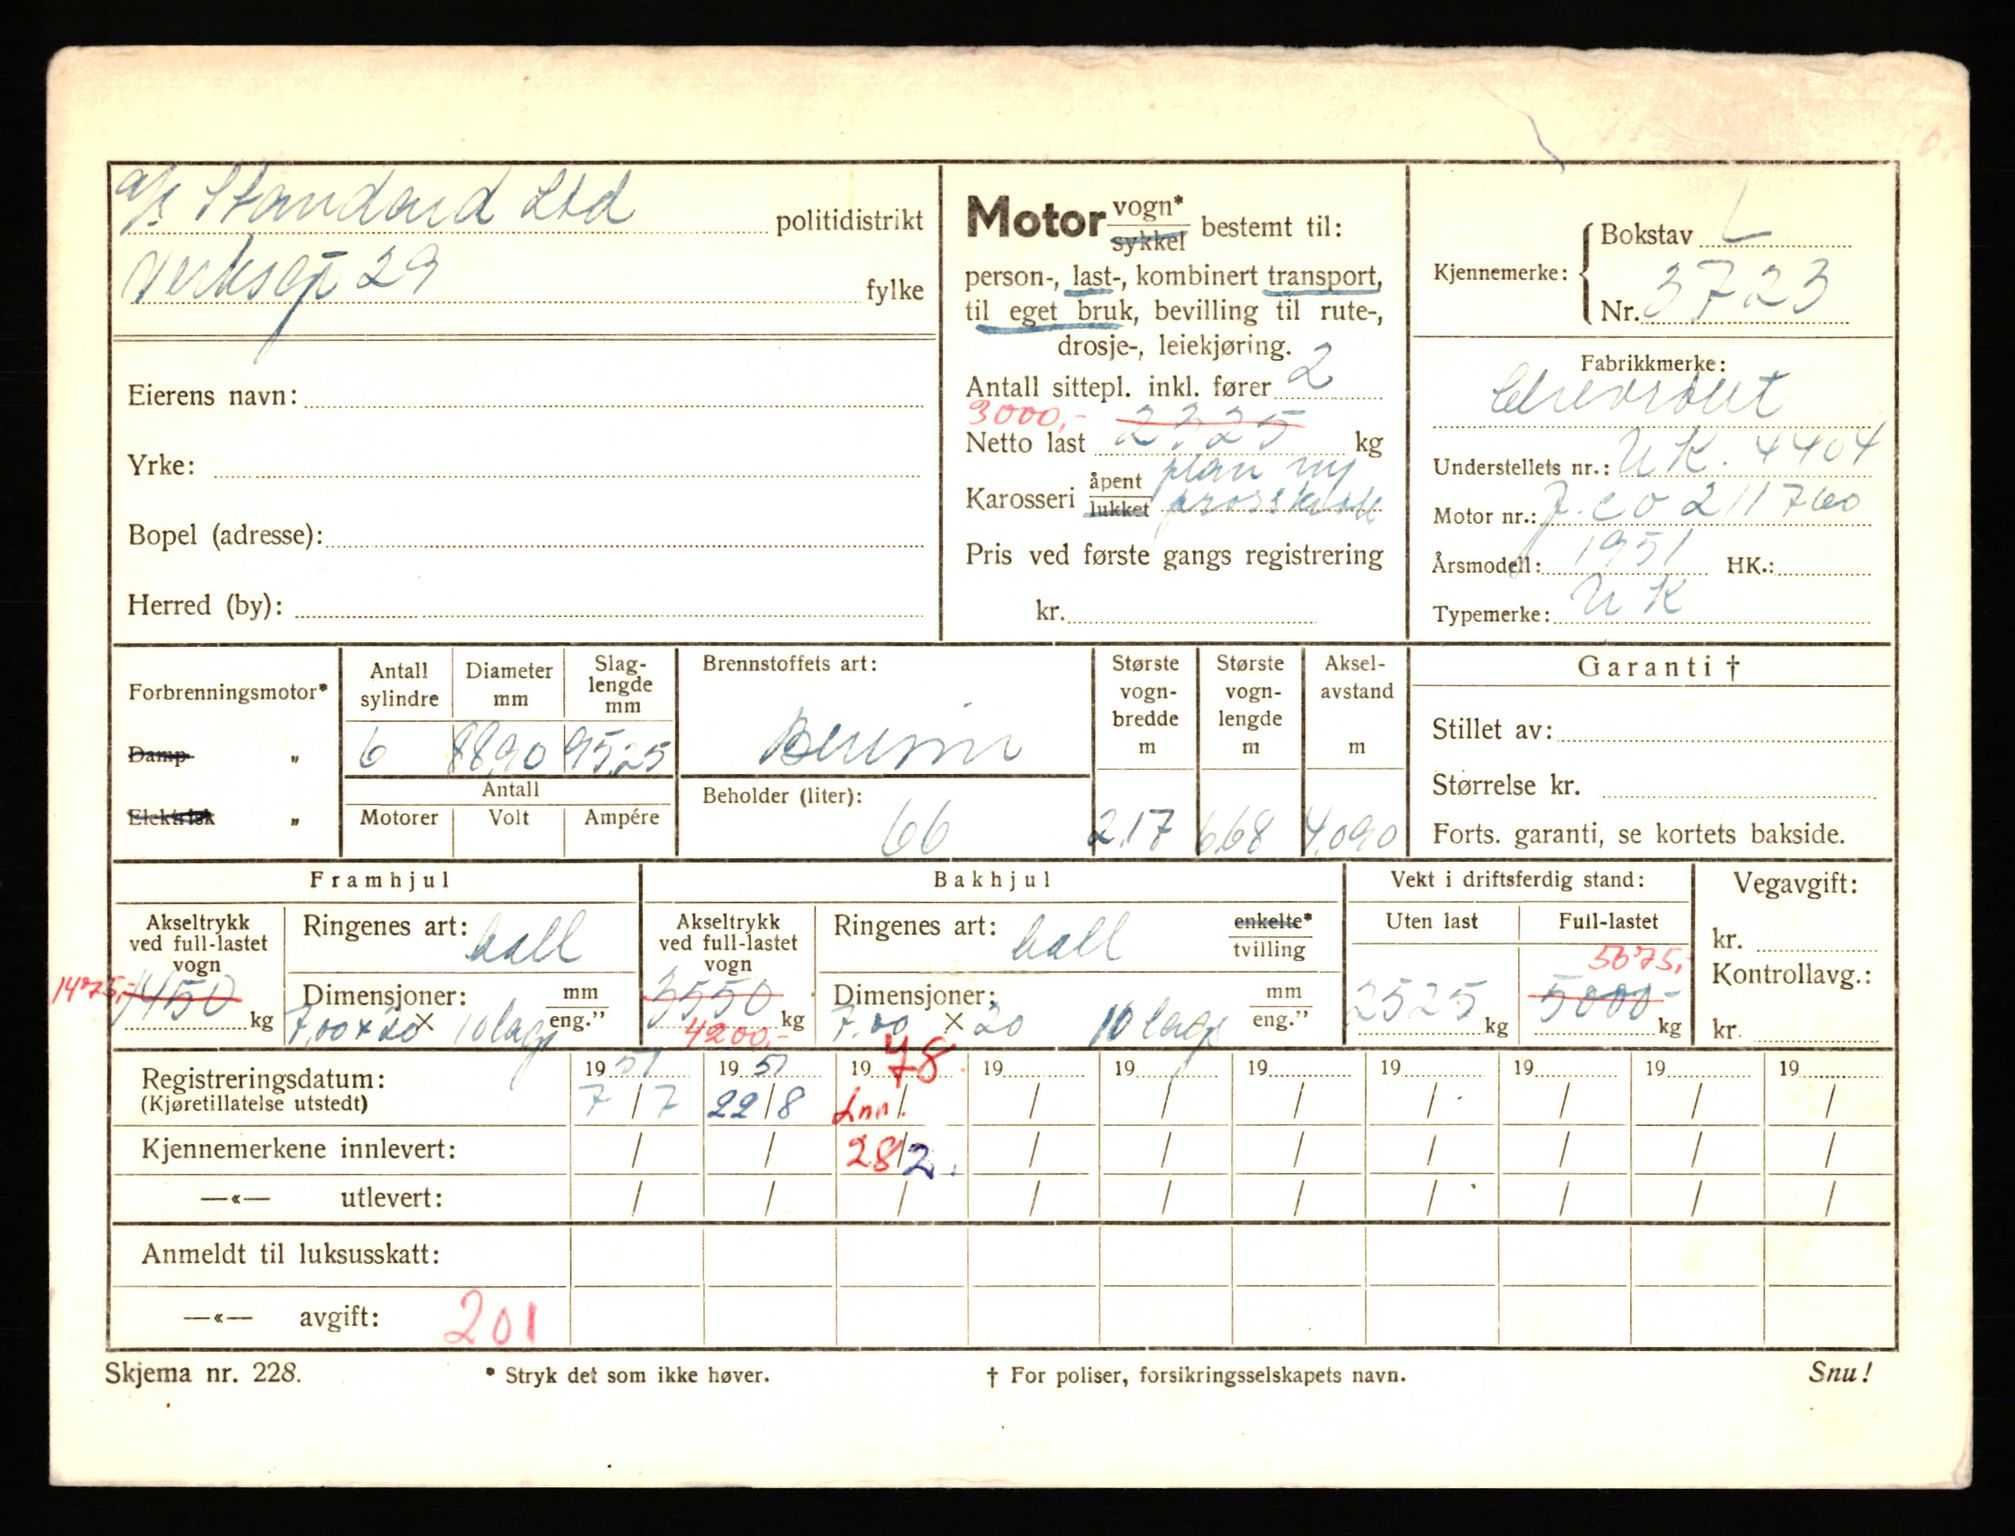 a/s Standard Ltd politidistrikt
Verksgt 29 fylke
Eierens navn:
Yrke:
Bopel (adresse):
Herred (by):
Motor vogn* sykkel bestemt til:
person-, last-, kombinert transport,
til eget bruk, bevilling til rute-,
drosje-, leiekjøring.
Antall sittepl. inkl. fører 2
3000,-
Netto last 2325 kg
plan ny
Karosseri åpent lukket
Pris ved første gangs registrering
kr.
Kjennemerke: Bokstav L
Nr. 3723
Fabrikkmerke:
Chevrolet
Understellets nr.: UK. 4404
Motor nr.: 211760
Årsmodell: 1951 HK.:
Typemerke: UK
Forbrenningsmotor*
Damp "
Elektrisk "
Antall sylindre
Diameter mm
Slag-lengde mm
6 88,90 95,25
Antall
Motorer Volt Ampére
Brennstoffets art:
Bensin
Beholder (liter):
66
Største vogn-bredde m
2,17
Største vogn-lengde m
6,68
Aksel-avstand m
4,090
Garanti †
Stillet av:
Størrelse kr.
Forts. garanti, se kortets bakside.
Framhjul
Akseltrykk ved full-lastet vogn
1475,- 1450 kg
Ringenes art: ball
Dimensjoner: mm eng."
7,00 x 20 10 lags
Bakhjul
Akseltrykk ved full-lastet vogn
3550
4200,- kg
Ringenes art: ball enkelte* tvilling
Dimensjoner: mm eng."
7.00 x 20 10 lags
Vekt i driftsferdig stand:
Uten last Full-lastet
5675,-
2525 kg 5000- kg
Vegavgift:
kr.
Kontrollavg.:
kr.
19 51 19 51 19 78 19 19 19 19 19 19 19
Registreringsdatum:
(Kjøretillatelse utstedt)
7/7 22/8 Inn. / / / / / / / /
Kjennemerkene innlevert: / / 28/2. / / / / / / /
—«— utlevert: / / / / / / / / / /
Anmeldt til luksusskatt:
—«— avgift: 201
Skjema nr. 228. * Stryk det som ikke høver. † For poliser, forsikringsselskapets navn. Snu!